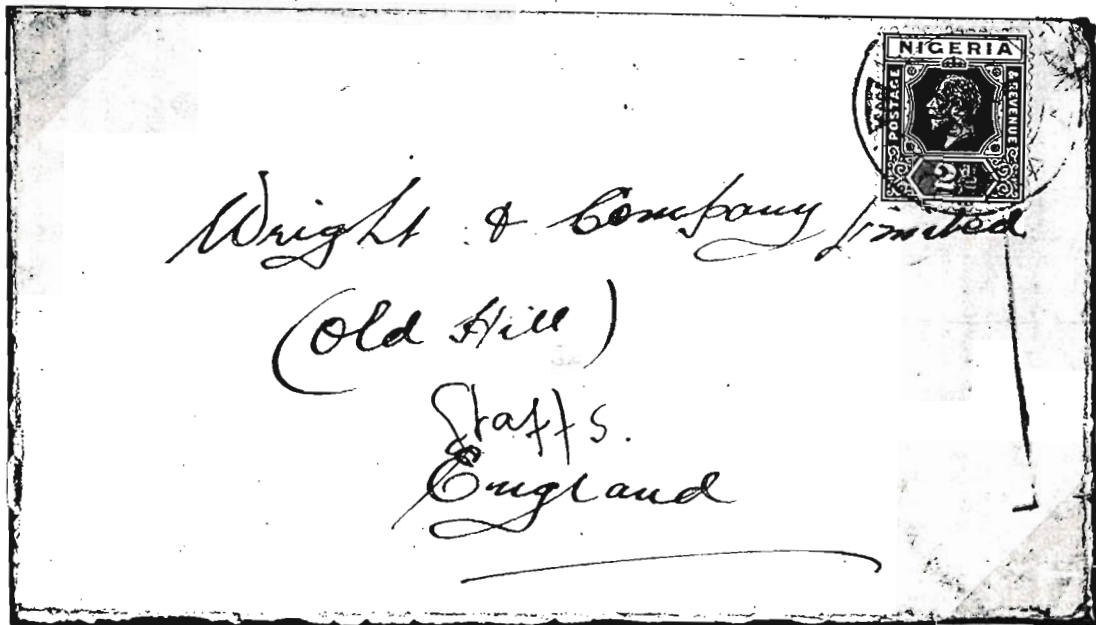 NIGERIA
POSTAGE
& REVENUE
Wright & Company Limited
(Old Hill)
Staffs.
England